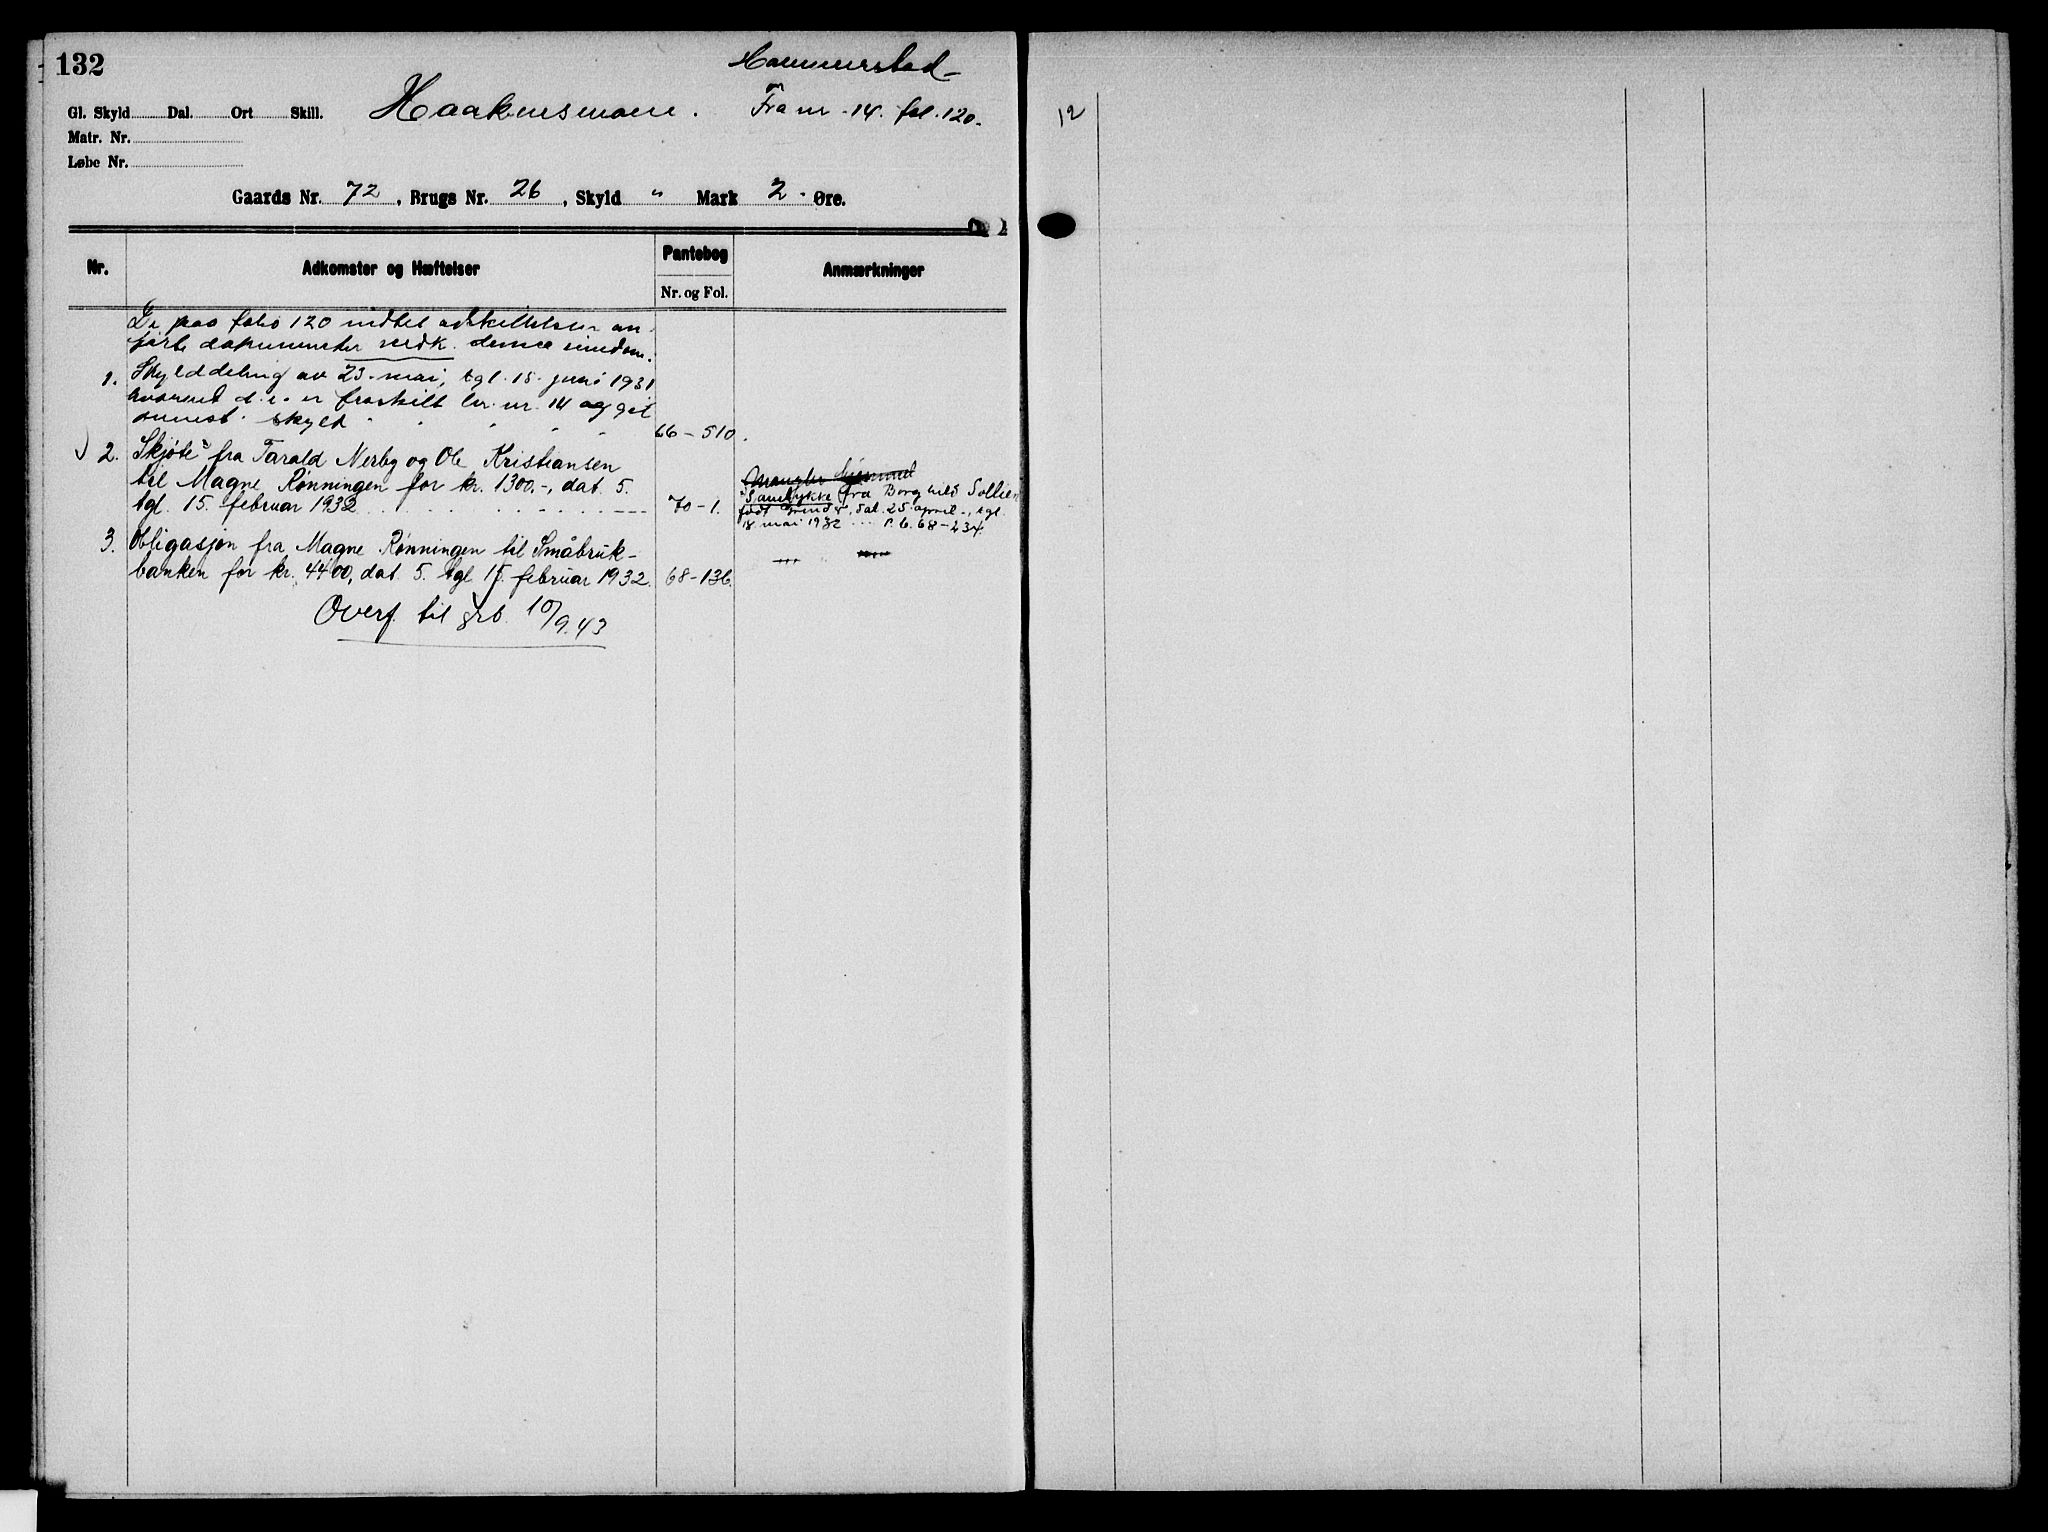 132
Hammerstad
Gl. Skyld Dal. Ort Skill. Haakensmoen. Fra nr. 14. fol. 120.
Matr. Nr.
Løbe Nr.
Gaards Nr. 72, Brugs Nr. 26, Skyld " Mark 2 Øre.
Nr. Adkomster og Hæftelser Pantebog Anmærkninger
Nr. og Fol.
De paa folio 120 indtil adskillelsen an-
førte dokumenter vedk. denne eiendom.
1. Skylddeling av 23. mai, tgl. 18. juni 1931
hvorved d. e. er fraskilt br. nr. 14 og git
skyld 66-510.
2. Skjøte fra Tarald Nerby og Ole Kristiansen
til Magne Rønningen for kr. 1300.-, dat. 5.
tgl. 15. februar 1932 70-1.
Mangler hjemmel
Samtykke fra Borghild Sollien
født, dat. 25. april, tgl.
18. mai 1932 P.b. 68-234.
3. Obligasjon fra Magne Rønningen til Småbruk-
banken for kr. 4400, dat. 5. tgl. 15. februar 1932. 68-136.
Overf. til grb. 10/9.43
12